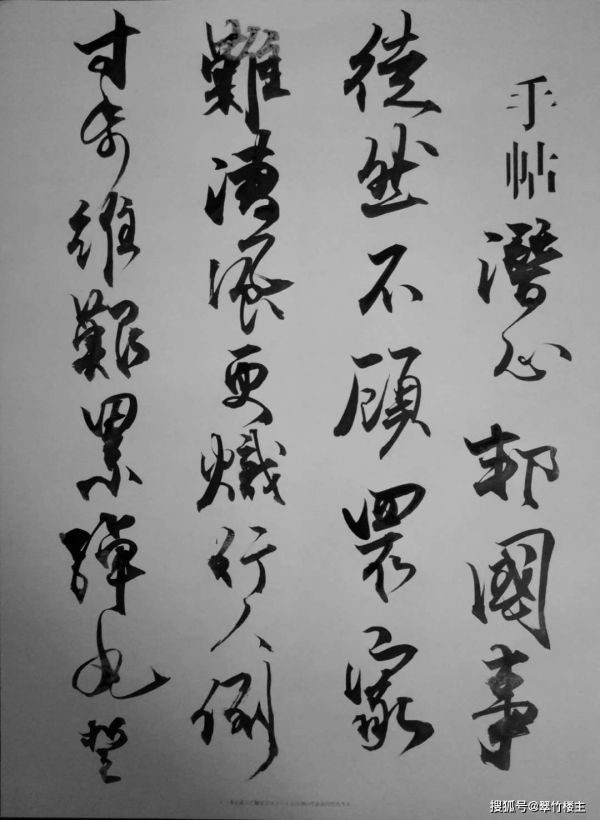 手帖潛心邦國事
徒然不顧家
難風更熾行人倒
寸步維艱累彈丸
搜狐号@翠竹楼主